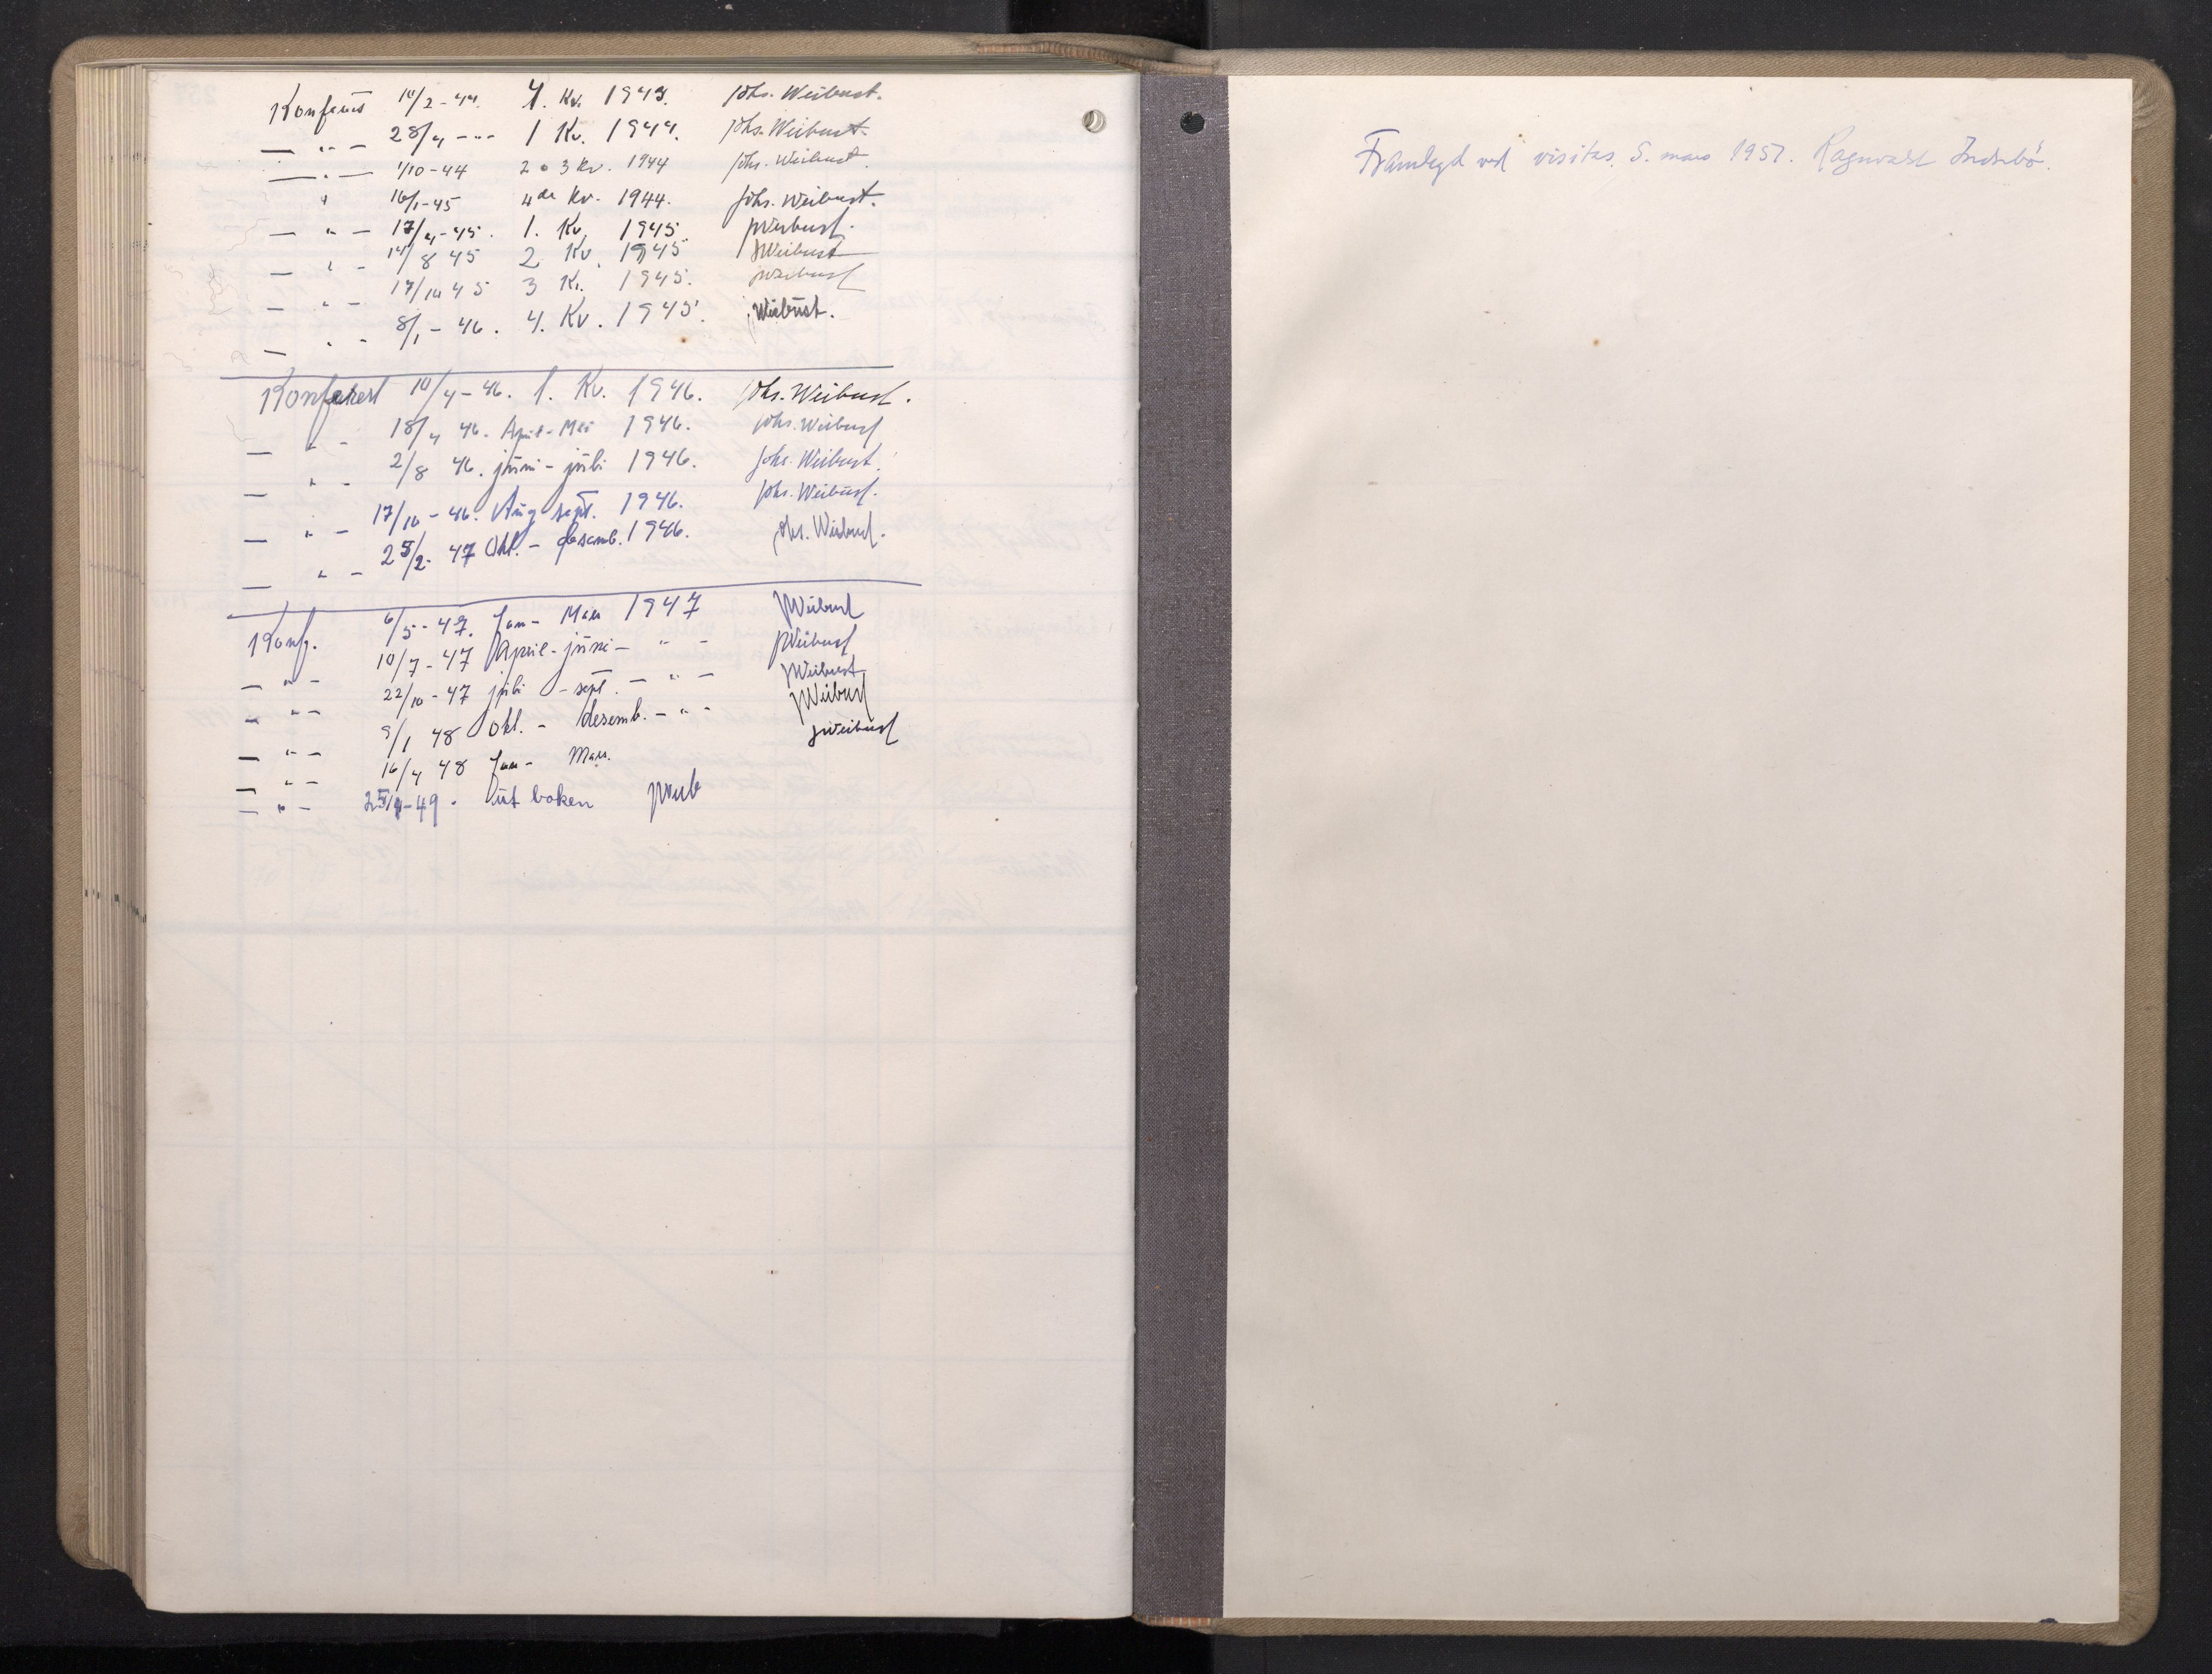 Konferert 10/2-44. 4. Kv. 1943. Johs. Weibust.
— " — 28/4 -"- 1 Kv. 1944. Johs. Weibust.
— " — 1/10-44 2 o 3 Kv. 1944 Johs. Weibust.
" 16/1-45 4de Kv. 1944. Johs. Weibust.
— " — 17/4-45. 1. Kv. 1945 JWeibust.
— " — 14/8 45 2 Kv. 1945 JWeibust
— " — 17/10 45 3 Kv. 1945. JWeibust
— " — 8/1-46. 4. Kv. 1945. JWeibust.
Konferert 10/4-46. 1. Kv. 1946. Johs. Weibust.
— " — 18/4 46. April-Mai 1946. Johs. Weibust
— " — 2/8 46. juni-juli 1946. Johs. Weibust.
— " — 17/10-46. Aug sept. 1946. Johs. Weibust.
— " — 25/2-47 Okt.-desemb. 1946. Johs. Weibust.
Konf. 6/5-47. Jan-Mars 1947 JWeibust
— " — 10/7-47 April-juni- " — JWeibust
— " — 22/10-47 juli-sept. — " — JWeibust
— " — 9/1 48 Okt.-desemb. — " — JWeibust
— " — 16/4 48 Jan-Mars. JWeibust
— " — 25/4-49. ut boken JWeib
Framlegd ved visitas 5. mars 1957. Ragnvald Indrebö.